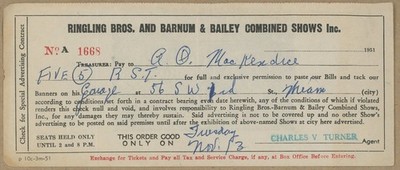 RINGLING BROS. AND BARNUM & BAILEY COMBINED SHOWS Inc.
Check for Special Advertising Contract
No. A 1668
1951
TREASURER: Pay to A O. MacKendree
FIVE (5) R S.T. for full and exclusive permission to paste our Bills and tack our
Banners on his Garage at 56 S W 2nd St., Miami (city)
according to conditions set forth in a contract bearing even date herewith, any of the conditions of which if violated
renders this check null and void, and involves responsibility to Ringling Bros-Barnum & Bailey Combined Shows,
Inc., for any damages they may thereby sustain. Said advertising is not to be covered up and no other Show's
advertising to be posted on said premises until after the exhibition of above-named Shows at city here advertised.
SEATS HELD ONLY
UNTIL 2 and 8 P.M.
THIS ORDER GOOD
ONLY ON
Tuesday
Nov. 13
CHARLES V TURNER
Agent
Exchange for Tickets and Pay all Tax and Service Charge, if any, at Box Office Before Entering.